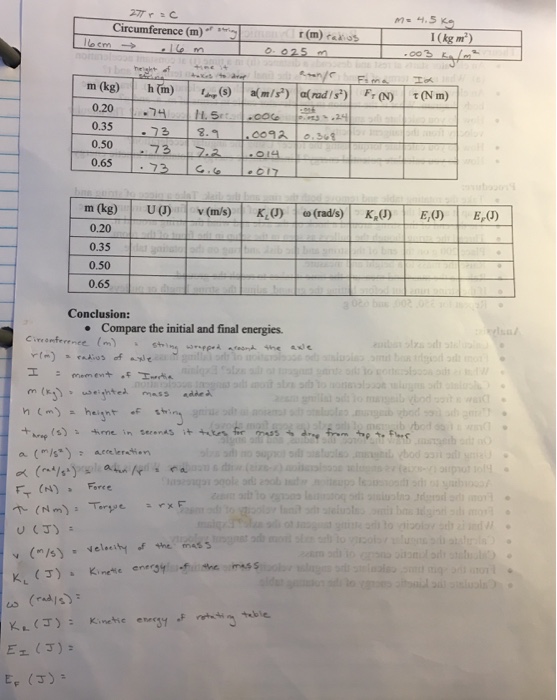 2πr = C
M = 4.5 kg
Circumference (m) of string r (m) radius I (kg m²)
16 cm → .16 m 0.025 m .003 kg/m²
height of string time it takes to drop atan/r F=ma Iα
m (kg) h (m) t (s) a(m/s²) α(rad/s²) F_T (N) τ (N m)
0.20 .74 11.5 .006 .24
0.35 .73 8.9 .0092 0.368
0.50 .73 7.2 .014
0.65 .73 6.6 .017
m (kg) U (J) v (m/s) K_L(J) ω (rad/s) K_R(J) E_I(J) E_F(J)
0.20
0.35
0.50
0.65
Conclusion:
• Compare the initial and final energies.
Circumference (m) = string wrapped around the axle
r(m) = radius of axle
I = moment of Inertia
m (kg) = weighted mass added
h (m) = height of string
t drop (s) = time in seconds it takes for mass to drop from top to floor
a (m/s²) = acceleration
α (rad/s²) = atan/r = ra
F_T (N) = Force
τ (Nm) = Torque = r x F
U (J) =
v (m/s) = velocity of the mass
K_L (J) = Kinetic energy of the mass
ω (rad/s) =
K_R (J) = Kinetic energy of rotating table
E_I (J) =
E_F (J) =